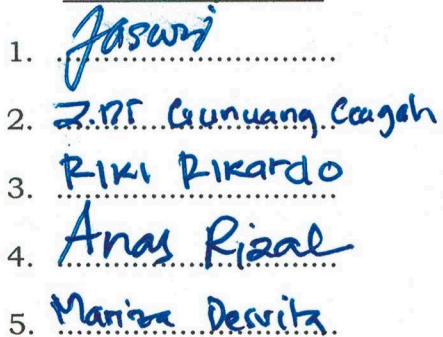 1. Jaswri
2. Z.DT Gunuang Gagah
3. RIKI RIKARDO
4. Anas Rizal
5. Mariza Desvita